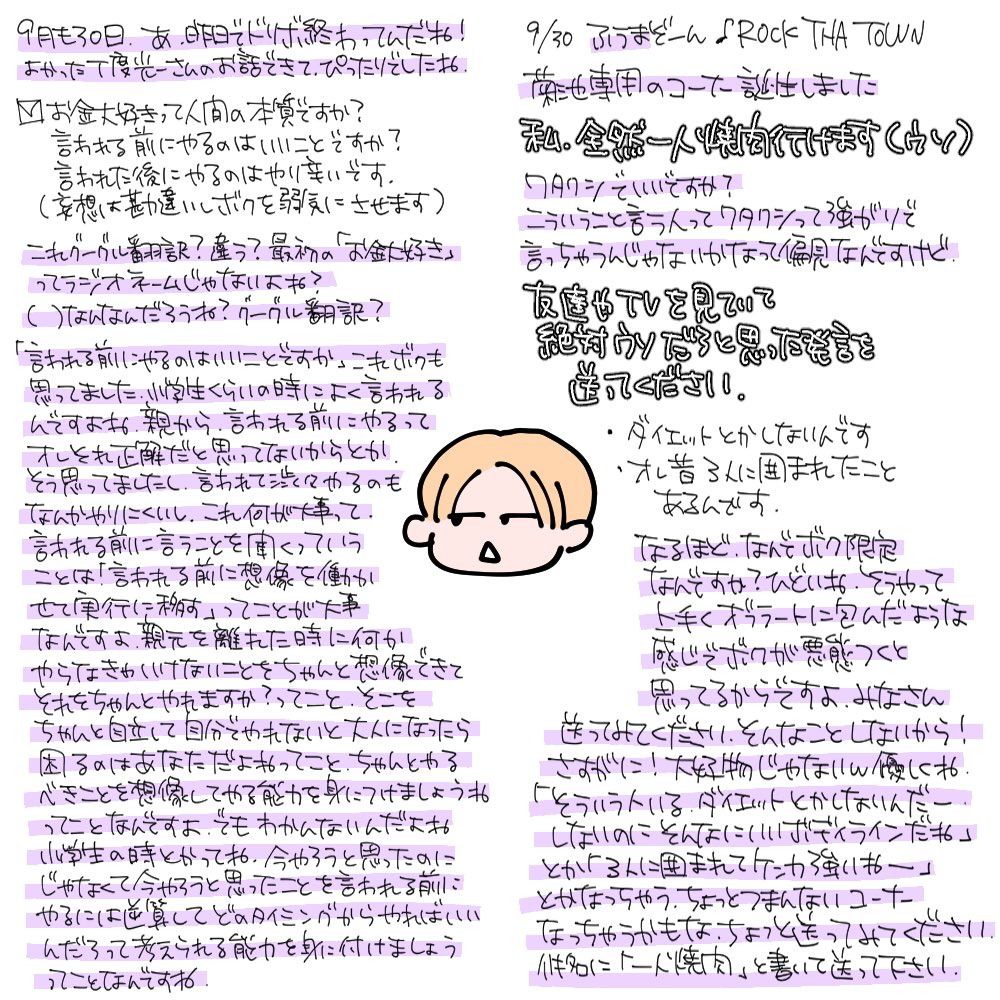 9月も30日、あ、昨日でドリボ終わってんだね!
よかった丁度光一さんのお話できて、ぴったりでしたね。
✉お金大好きって人間の本質ですか?
言われる前にやるのはいいことですか?
言われた後にやるのはやり辛いです。
(妄想は勘違いしボクを弱気にさせます)
これグーグル翻訳?違う?最初の「お金大好き」
ってラジオネームじゃないよね?
( )なんなんだろうね?グーグル翻訳?
「言われる前にやるのはいいことですか」これボクも
思ってました、小学生くらいの時によく言われる
んですよね。親から、言われる前にやるって
オレそれ正解だと思ってないからとか、
そう思ってましたし、言われて渋々やるのも
なんかやりにくいし、これ何が大事って、
言われる前に言うことを聞くっていう
ことは「言われる前に想像を働か
せて実行に移す」ってことが大事
なんですよ、親元を離れた時に何か
やらなきゃいけないことをちゃんと想像できて
それをちゃんとやれますか?ってこと、そこを
ちゃんと自立して自分でやれないと大人になったら
困るのはあなただよねってこと、ちゃんとやる
べきことを想像してやる能力を身につけましょうね
ってことなんですよ、でもわかんないんだよね
小学生の時とかってね、今やろうと思ったのに
じゃなくて今やろうと思ったことを言われる前に
やるには逆算してどのタイミングからやればいい
んだろって考えられる能力を身に付けましょう
ってことなんですね。
9/30 ふうまぞーん♪ROCK THA TOWN
菊池専用のコーナー誕生しました
私、全然一人焼肉行けます(ウソ)
ワタクシでいいですか?
こういうこと言う人ってワタクシって強がりで
言っちゃうんじゃないかなって偏見なんですけど、
友達やTVを見ていて
絶対ウソだろと思った発言を
送ってください。
・ダイエットとかしないんです
・オレ昔3人に囲まれたこと
あるんです。
なるほど、なんでボク限定
なんですか?ひどいね、そうやって
上手くオブラートに包んだような
感じでボクが悪態つくと
思ってるからですよ、みなさん
送ってみてください、そんなことしないから!
さすがに!大好物じゃないw優しくね。
「そういう人いる、ダイエットとかしないんだー、
しないのにそんなにいいボディラインだね」
とか「3人に囲まれてケンカ強いねー」
とかなっちゃう、ちょっとつまんないコーナー
なっちゃうかもな、ちょっと送ってみてください、
件名に「一人焼肉」と書いて送って下さい。